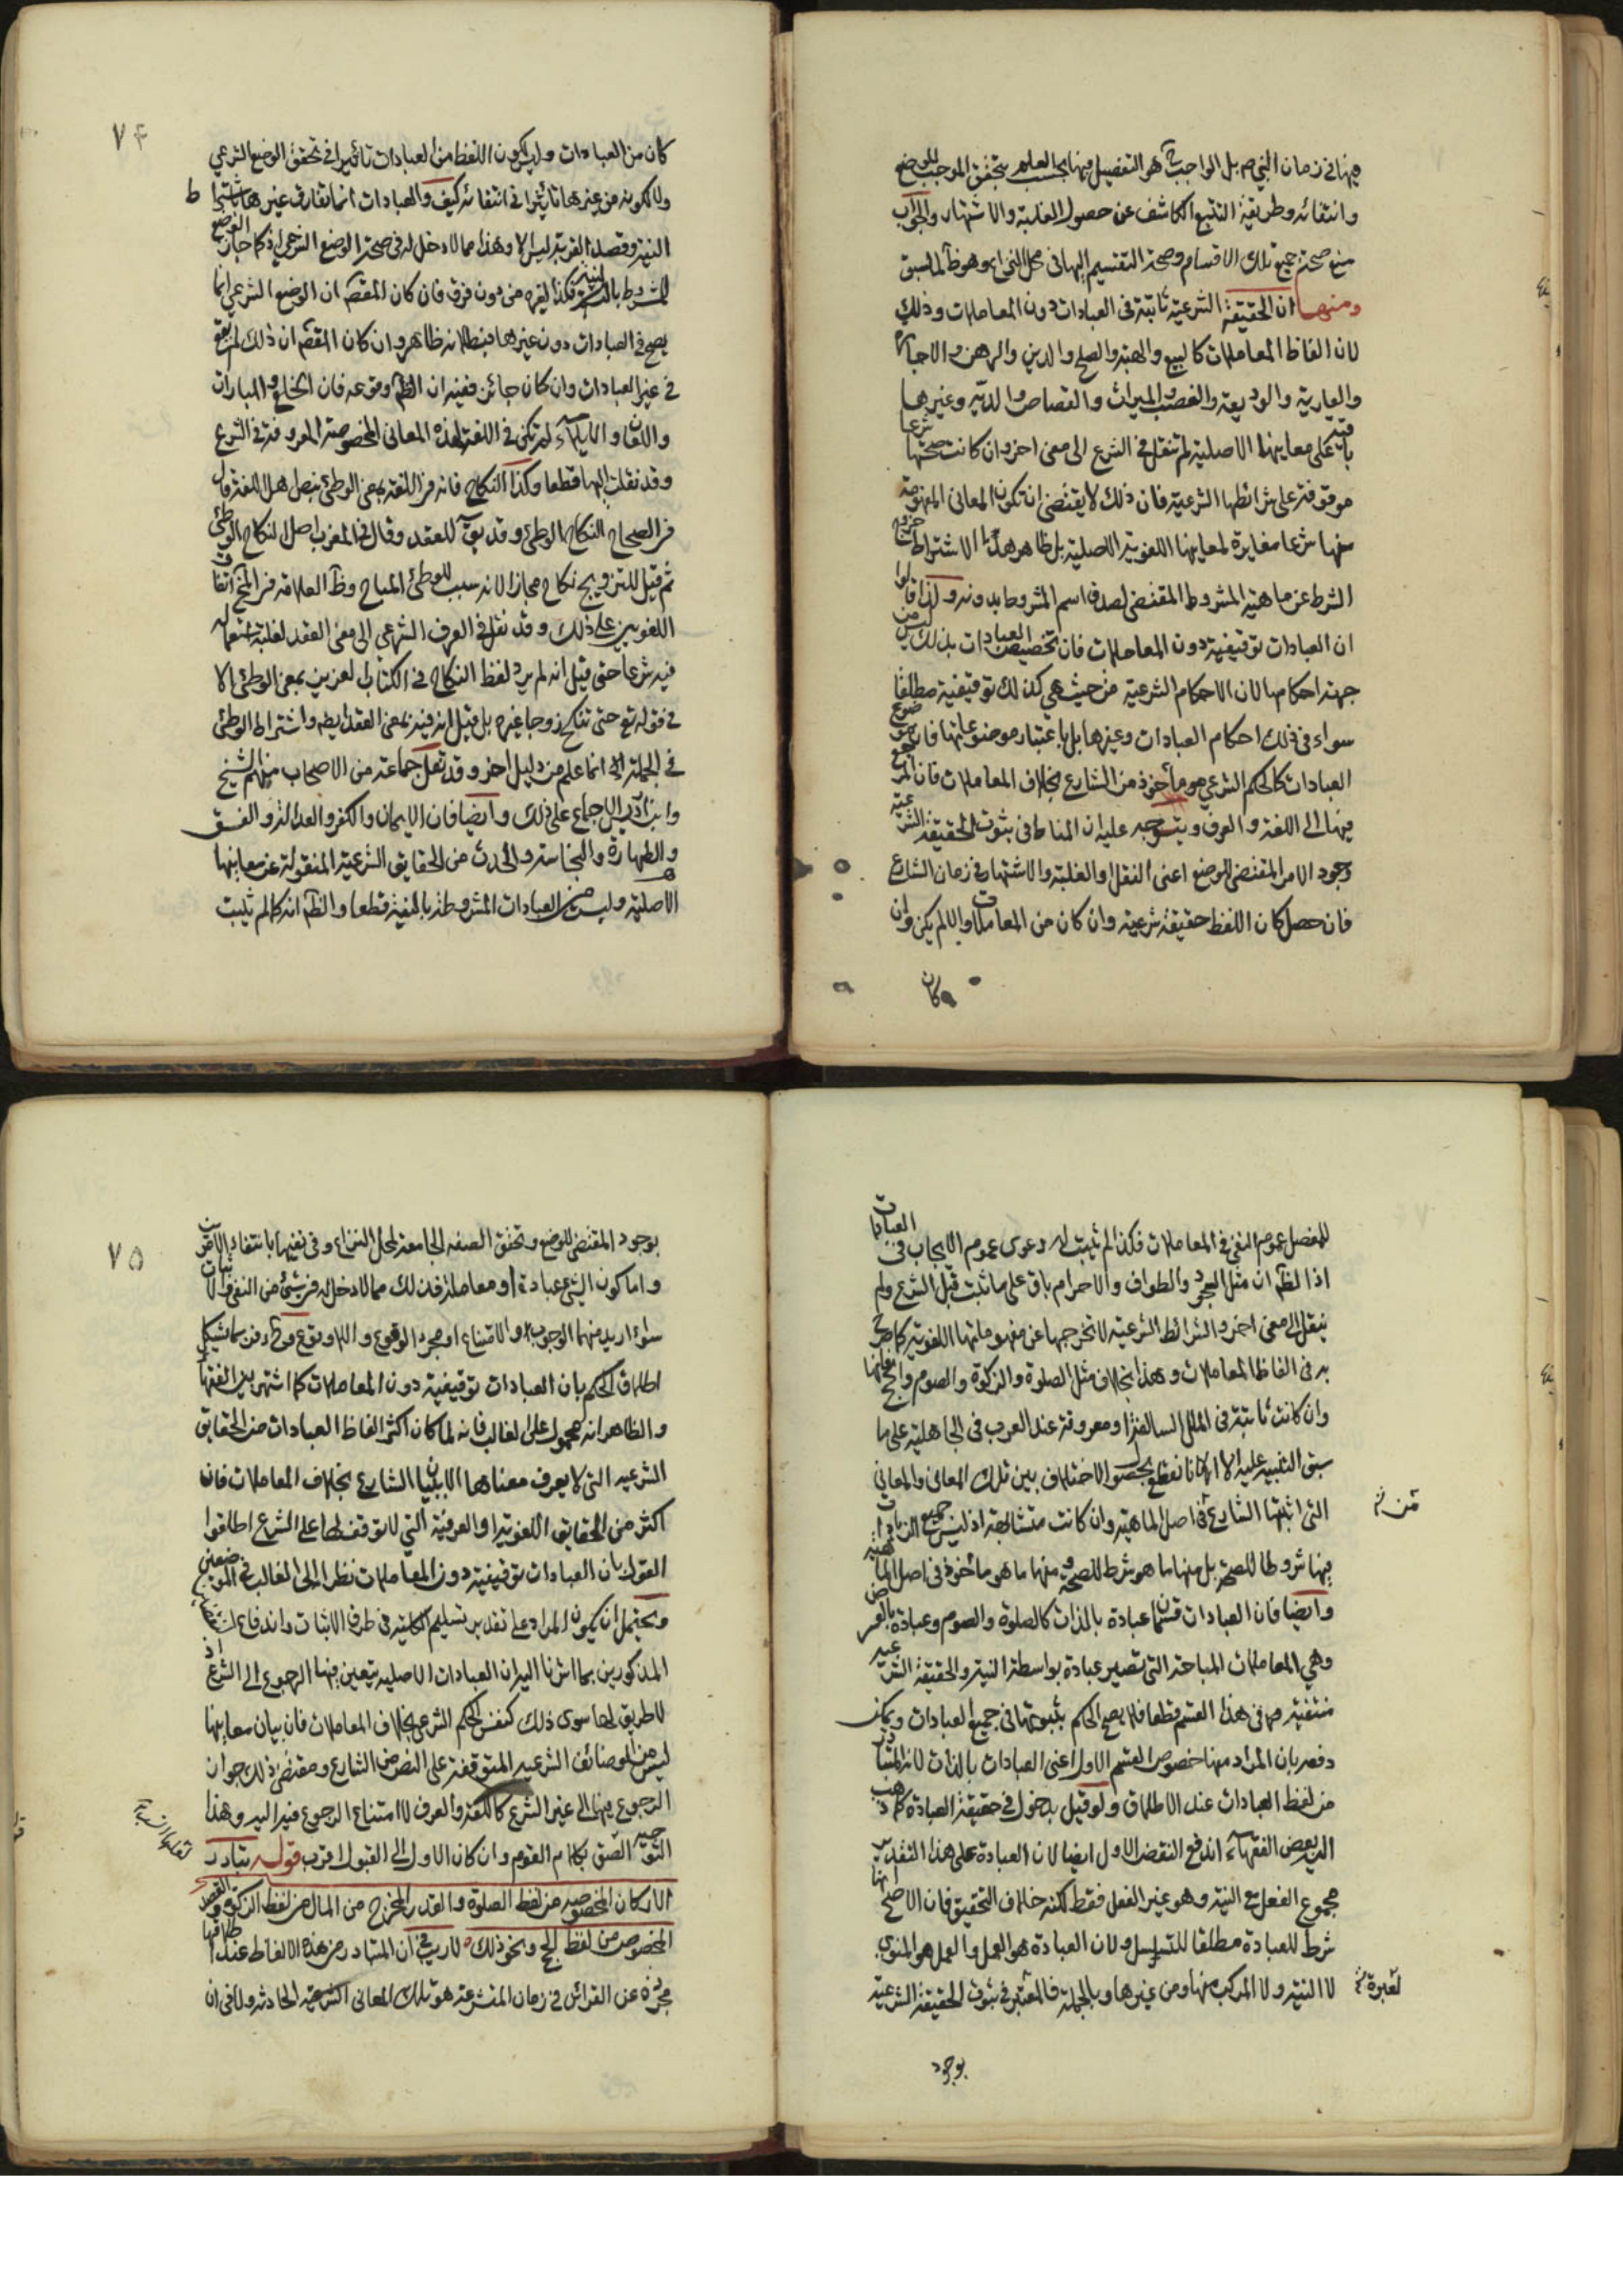 فيها في زمان النبي ص بل الواجب ح هو التفصيل فيها بحسب العلم بتحقق الموجب للوضع
وانتفائه وطريقة التتبع الكاشف عن حصول الغلبة والاشتهار والجواب
منع صحة جميع تلك الاقسام وصحة التقسيم اليها في محل النزاع وهو ظ لما سبق
ومنها ان الحقيقة الشرعية ثابتة في العبادات دون المعاملات وذلك
لان الفاظ المعاملات كالبيع والهبة والصلح والدين والرهن والاجارة
والعارية والوديعة والغصب والميراث والقصاص والدية وغيرها
باقية على معانيها الاصلية لم تنقل في الشرع الى معنى اخر وان كانت صحتها شرعا
موقوفة على شرائطها الشرعية فان ذلك لا يقتضي ان تكون المعاني المفهومة
منها شرعا مغايرة لمعانيها اللغوية الاصلية بل ظاهر هذا الاشتراط خروج
الشرط عن ماهية المشروط المقتضي لصدق اسم المشروط بدونه ولذا قالوا
ان العبادات توقيفية دون المعاملات فان تخصيص العبادات بذلك ليس من
جهة احكامها لان الاحكام الشرعية من حيث هي كذلك توقيفية مطلقا
سواء في ذلك احكام العبادات وغيرها بل باعتبار موضوعاتها فان موضوع
العبادات كالحكم الشرعي هو مأخوذ من الشارع بخلاف المعاملات فان المرجع
فيها الى اللغة والعرف ويتوجه عليه ان المناط في ثبوت الحقيقة الشرعية
وجود الامر المقتضي للوضع اعني النقل والغلبة والاشتهار في زمان الشارع
فان حصل كان اللفظ حقيقة شرعية وان كان من المعاملات والا لم يكن وان
كان
٧۴
كان من العبادات وليس لكون اللفظ من العبادات تاثيرا في تحقق الوضع الشرعي
ولا لكونه من غيرها تاثيرا في انتفائه كيف والعبادات انما تفارق غيرها باشتراط
النية وقصد القربة ليس الا وهذا مما لا دخل له في صحة الوضع الشرعي اذ كما جاز الوضع
للمشروط بالنية فكذا لغيره من دون فرق فان كان المقصد ان الوضع الشرعي انما
يصح في العبادات دون غيرها فبطلانه ظاهر وان كان المقصد ان ذلك لم يقع
في غير العبادات وان كان جائزا ففيه ان الظ وقوعه فان الخلع والمبارات
واللعان والايلاء لم تكن في اللغة لهذه المعاني المخصوصة المعروفة في الشرع
وقد نقلت اليها قطعا وكذا النكاح فانه في اللغة بمعنى الوطئ بنص اهل اللغة قال
في الصحاح النكاح الوطئ وقد يق للعقد وقال في المغرب اصل النكاح الوطئ
ثم قيل للتزويج نكاح مجازا لانه سبب للوطئ المباح وظ العلامة في النهج اتفاق
اللغويين على ذلك وقد نقل في العرف الشرعي الى معنى العقد لغلبة استعماله
فيه شرعا حتى قيل انه لم يرد لفظ النكاح في الكتاب العزيز بمعنى الوطئ الا
في قوله تع حتى تنكح زوجا غيره بل قيل انه فيه بمعنى العقد ايضا واشتراط الوطئ
في الجملة انما علم من دليل اخر وقد نقل جماعة من الاصحاب منهم الشيخ
وابن ادريس الاجماع على ذلك وايضا فان الايمان والكفر والعدالة والفسق
والطهارة والنجاسة والحدث من الحقايق الشرعية المنقولة عن معانيها
الاصلية وليس من العبادات المشروطة بالنية قطعا والظ انه كما لم يثبت
للمفصل عموم النفي في المعاملات فكذا لم يثبت له دعوى عموم الايجاب في العبادات
اذ الظ ان مثل السجود والطواف والاحرام باق على ما ثبت قبل الشرع ولم
ينقل الى معنى اخر والشرائط الشرعية لا تخرجها عن مفهوماتها اللغوية كما صرح
به في الفاظ المعاملات وهذا بخلاف مثل الصلوة والزكوة والصوم والحج فانها
وان كانت ثابتة في الملل السالفة او معروفة عند العرب في الجاهلية على ما
سبق التنبيه عليه الا انا نقطع بحصول الاختلاف بين تلك المعاني والمعاني
التي اثبتها الشارع في اصل الماهية وان كانت متشابهة اذ ليس جميع الزيادات
فيها شروطا للصحة بل منها ما هو شرط للصحة ومنها ما هو مأخوذ في اصل الماهية
وايضا فان العبادات قسمان عبادة بالذات كالصلوة والصوم وعبادة بالعرض
وهي المعاملات المباحة التي تصير عبادة بواسطة النية والحقيقة الشرعية
منتفية في هذا القسم قطعا فلا يصح الحكم بثبوتها في جميع العبادات ويمكن
دفعه بان المراد منها خصوص القسم الاول اعني العبادات بالذات لانه المتبادر
من لفظ العبادات عند الاطلاق ولو قيل بدخول في حقيقة العبادة كما ذهب
اليه بعض الفقهاء اندفع النقض الاول ايضا لان العبادة على هذا التقدير
مجموع الفعل مع النية وهو غير الفعل فقط لكنه خلاف التحقيق فان الاصح انها
شرط للعبادة مطلقا للتسلسل ولان العبادة هو العمل والعمل هو المنوي
لا النية ولا المركب منها ومن غيرها وبالجملة فالمعتبر في ثبوت الحقيقة الشرعية
بوجود
٧۵
بوجود المقتضي للوضع وتحقق الصفة الجامعة لمحل النزاع وفي نفيها بانتفاء الامرين
واما كون الشئ عبادة او معاملة فذلك مما لا دخل له في شئ من النفي والاثبات
سواء اريد منهما الوجوب والامتناع او مجرد الوقوع واللاوقوع وح فربما يشكل
اطلاق الحكم بان العبادات توقيفية دون المعاملات كما اشتهر بين الفقهاء
والظاهر انه محمول على الغالب فانه لما كان اكثر الفاظ العبادات من الحقايق
الشرعية التي لا يعرف معناها الا ببيان الشارع بخلاف المعاملات فان
اكثر من الحقايق اللغوية او العرفية التي لا توقف لها على الشرع اطلقوا
القول بان العبادات توقيفية دون المعاملات نظرا الى الغالب في الموضعين
ويحتمل ان يكون المراد على تقدير تسليم الكلية في طرف الاثبات واندفاع النقضين
المذكورين بما اشرنا اليه ان العبادات الاصلية يتعين فيها الرجوع الى الشرع اذ
لا طريق لها سوى ذلك كنفس الحكم الشرعي بخلاف المعاملات فان بيان معانيها
ليس من الوضائف الشرعية المتوقفة على النص من الشارع ومقتضى ذلك جواز
الرجوع فيها الى غير الشرع كاللغة والعرف لا امتناع الرجوع فيه اليه وهذا
التوجيه الصق بكلام القوم وان كان الاول الى القبول اقرب قوله تبادر
الاركان المخصوصة من لفظ الصلوة والقدر المخرج من المال من لفظ الزكوة والقصد
المخصوص من لفظ الحج ونحو ذلك لا ريب في ان المتبادر من هذه الالفاظ عند اطلاقها
مجردة عن القرائن في زمان المتشرعة هو تلك المعاني الشرعية الحادثة ولا في ان